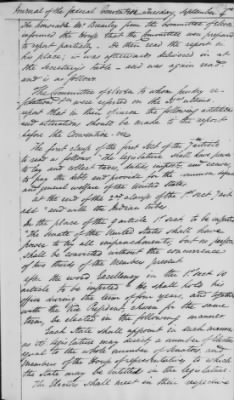 Journal of the federal Convention Tuesday September 4th
The honorable Mr Brearley from the Committee of eleven
informed the House that the Committee were prepared
to report partially. He then read the report in
his place; it was afterwards delivered in at
the Secretary's table and was again read
and is as follows.
The Committee of eleven to whom sundry re-
solutions &ca were referred on the 31st ultimo
report that in their opinion the following additions
and alterations should be made to the report
before the Convention viz
The first clause of the first sect. of the 7 article
to read as follows "The legislature shall have power
to lay and collect taxes, duties, imposts and excises,
to pay the debts and provide for the common defence
and general welfare of the United States
at the end of the 2nd clause of the 1st sect. 7 art.
add "and with the Indian tribes
In the place of the 9 article 1st sect. to be inserted
"The Senate of the United States shall have
power to try all impeachments, but no person
shall be convicted without the concurrence
of two thirds of the Members present
After the word Excellency in the 1st sect. 10
article to be inserted He shall hold his
office during the term of four years, and together
with the Vice President, chosen for the same
term, be elected in the following manner
Each State shall appoint in such manner
as its legislature may direct a number of Electors
equal to the whole number of Senators and
Members of the House of representatives to which
the State may be entitled in the legislature.
The Electors shall meet in their respective